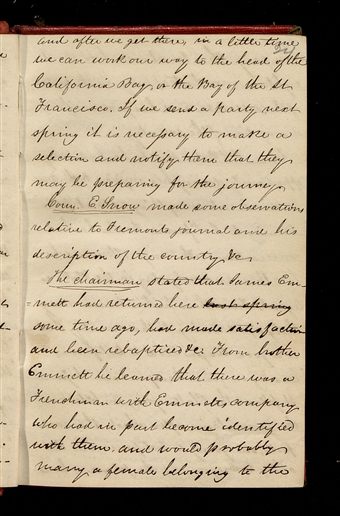 and after we get there, in a little time
24
we can work our way to the head of the
California Bay, or the Bay of the St
Francisco. If we send a party next
spring it is necessary to make a
selection and notify them that they
may be preparing for the journey.
Coun. E. Snow made some observations
relative to Fremonts journal and his
description of the country, &c.
The chairman stated that James Em-
=mett had returned here last spring
some time ago, had made satisfaction
and been rebaptized &c. From brother
Emmett he learned that there was a
Frenchman with Emmetts company
who had in part become identified
with them, and would probably
marry a female belonging to the